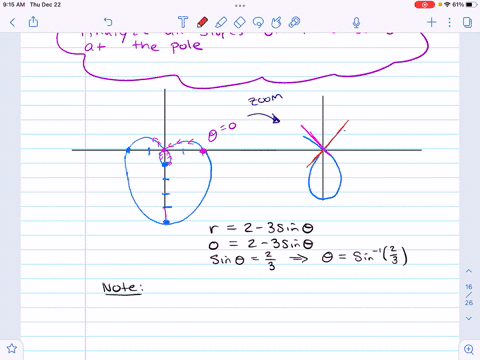 9:15 AM Thu Dec 22
61%
at the pole
zoom
θ = 0
r = 2 - 3sinθ
0 = 2 - 3sinθ
sinθ = 2/3 ⟹ θ = sin⁻¹(2/3)
Note:
16
/
26